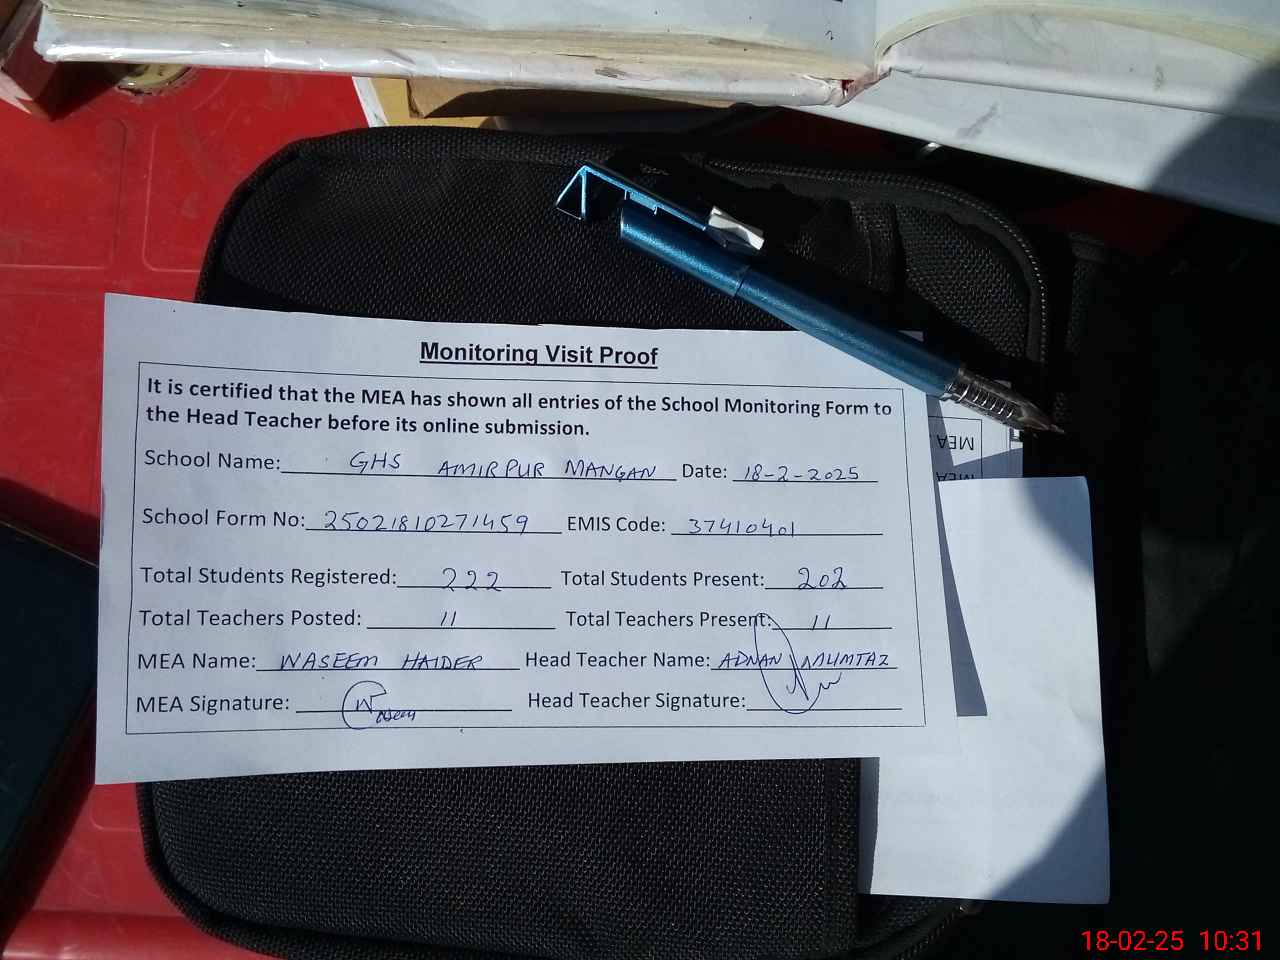 Monitoring Visit Proof
It is certified that the MEA has shown all entries of the School Monitoring Form to
the Head Teacher before its online submission.
School Name: GHS AMIRPUR MANGAN Date: 18-2-2025
School Form No: 25021810271459 EMIS Code: 37410401
Total Students Registered: 222 Total Students Present: 202
Total Teachers Posted: 11 Total Teachers Present: 11
MEA Name: WASEEM HAIDER Head Teacher Name: ADNAN MUMTAZ
MEA Signature: Waseem Head Teacher Signature:
MEA
MEA
18-02-25 10:31